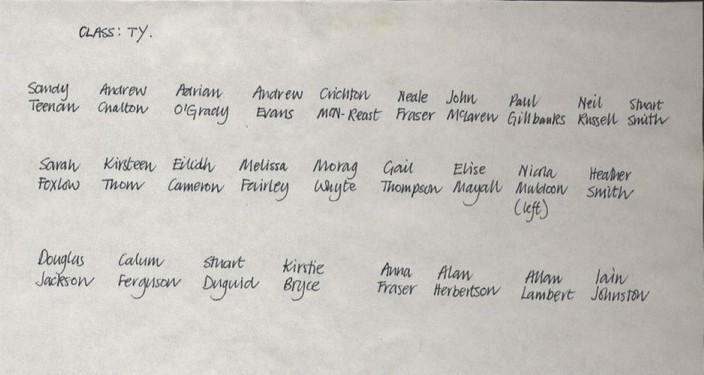 CLASS: TY.
Sandy Andrew Adrian Andrew Crichton Neale John Paul Neil Stuart
Teenan Chalton O'Grady Evans Fraser McLaren Gillbanks Russell Smith
Sarah Kirsteen Eilidh Melissa Morag Gail Elise Nicola Heather
Foxlow Thom Cameron Fairley Whyte Thompson Mayall Muldoon Smith
(left)
Douglas Calum Stuart Kirstie Anna Alan Allan Iain
Jackson Ferguson Duguid Bryce Fraser Herbertson Lambert Johnston